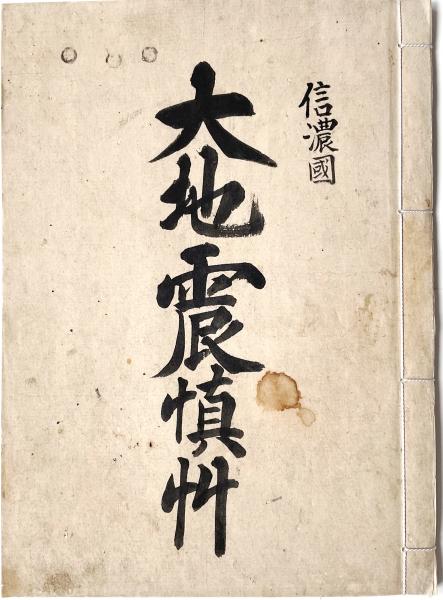 信濃國
大地震慎艸